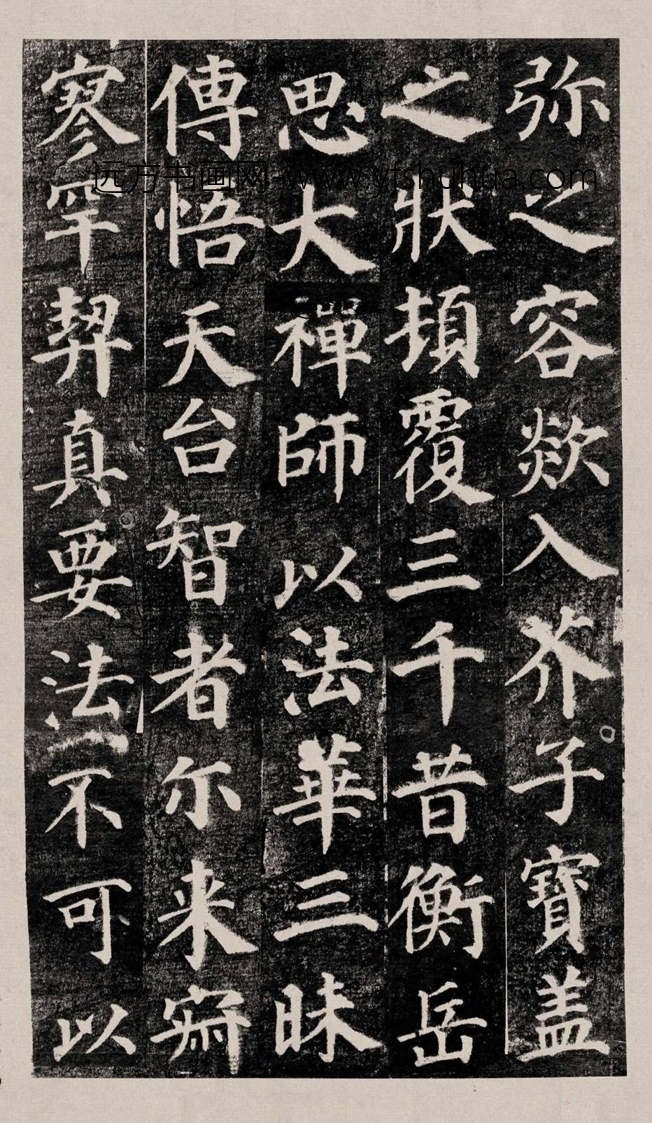 弥之容欻入芥子寶盖
之狀頓覆三千昔衡岳
思大禪師以法華三昧
傳悟天台智者尔来寂
寥罕契真要法不可以
远方书画网 www.yfshuhua.com